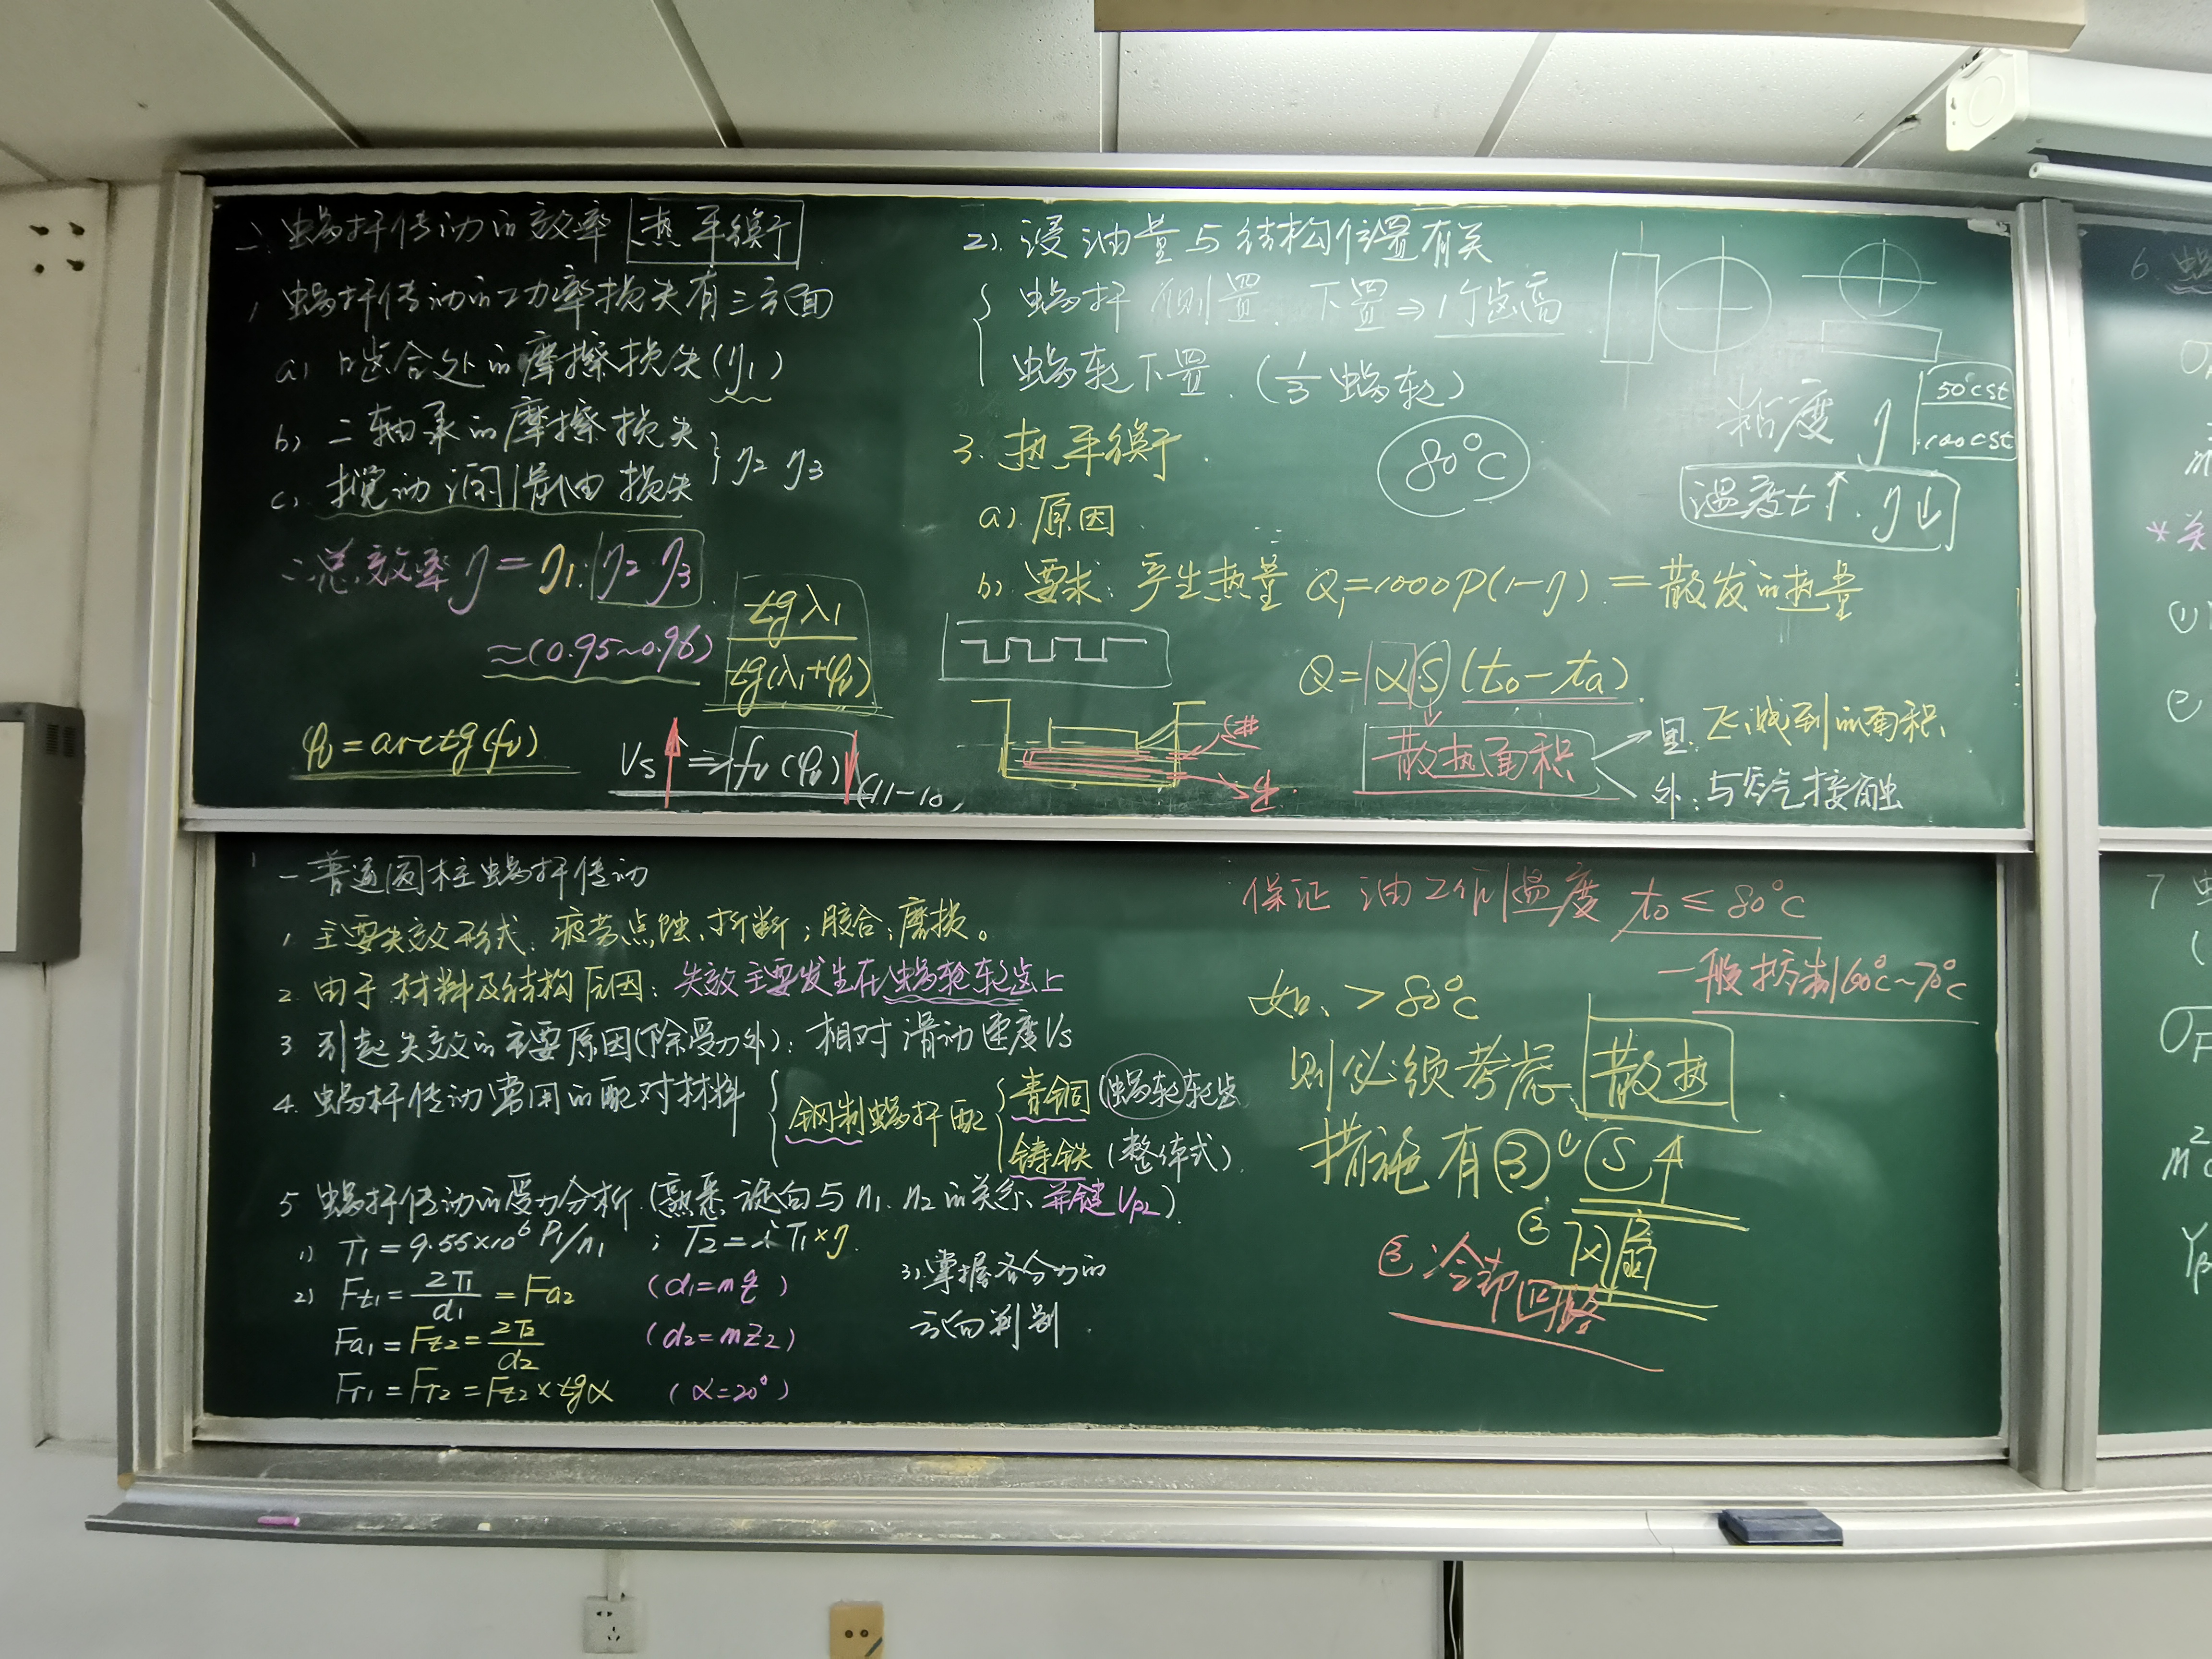 二、蜗杆传动的效率 热平衡
1、蜗杆传动的功率损失有三方面
a) 啮合处的摩擦损失(η1)
b) 二轴承的摩擦损失
c) 搅动润滑油损失
η2 η3
∴总效率η=η1·η2·η3
≈(0.95~0.96) tgλ1/tg(λ1+φv)
φv=arctg(fv)
Vs↑⇒fv(φv)↓(11-10)
2). 浸油量与结构位置有关
蜗杆侧置、下置⇒1个齿高
蜗轮下置.(1/3蜗轮)
3. 热平衡
80°C
粘度 η
50°cst
100cst
温度t↑.η↓
a) 原因
b) 要求：产生热量 Q1=1000P(1-η).=散发的热量
Q=αS(t0-ta)
散热面积
里：飞溅到的面积
外：与空气接触
进
出
一 普通圆柱蜗杆传动
1、主要失效形式：疲劳点蚀、折断；胶合；磨损。
2. 由于材料及结构原因：失效主要发生在蜗轮轮齿上
3. 引起失效的主要原因(除受力外)：相对滑动速度Vs
4. 蜗杆传动常用的配对材料 钢制蜗杆配
青铜(蜗轮轮齿
铸铁(整体式).
5 蜗杆传动的受力分析.(熟悉旋向与n1、n2的关系、关键Vp2).
1) T1=9.55×10⁶P1/n1 ; T2=iT1×η.
2) Ft1=2T1/d1=Fa2 (d1=mq)
Fa1=Ft2=2T2/d2 (d2=mZ2)
Fr1=Fr2=Ft2×tgα (α=20°)
3).掌握各分力的
方向判别.
保证 油工作温度 t0≤80°C
一般控制60°C~70°C
如、>80°C
则必须考虑 散热
措施有③ ① S↑
② 风扇
③ 冷却回路
6. 蜗
*关
①
②
7
σF
m²
Yβ